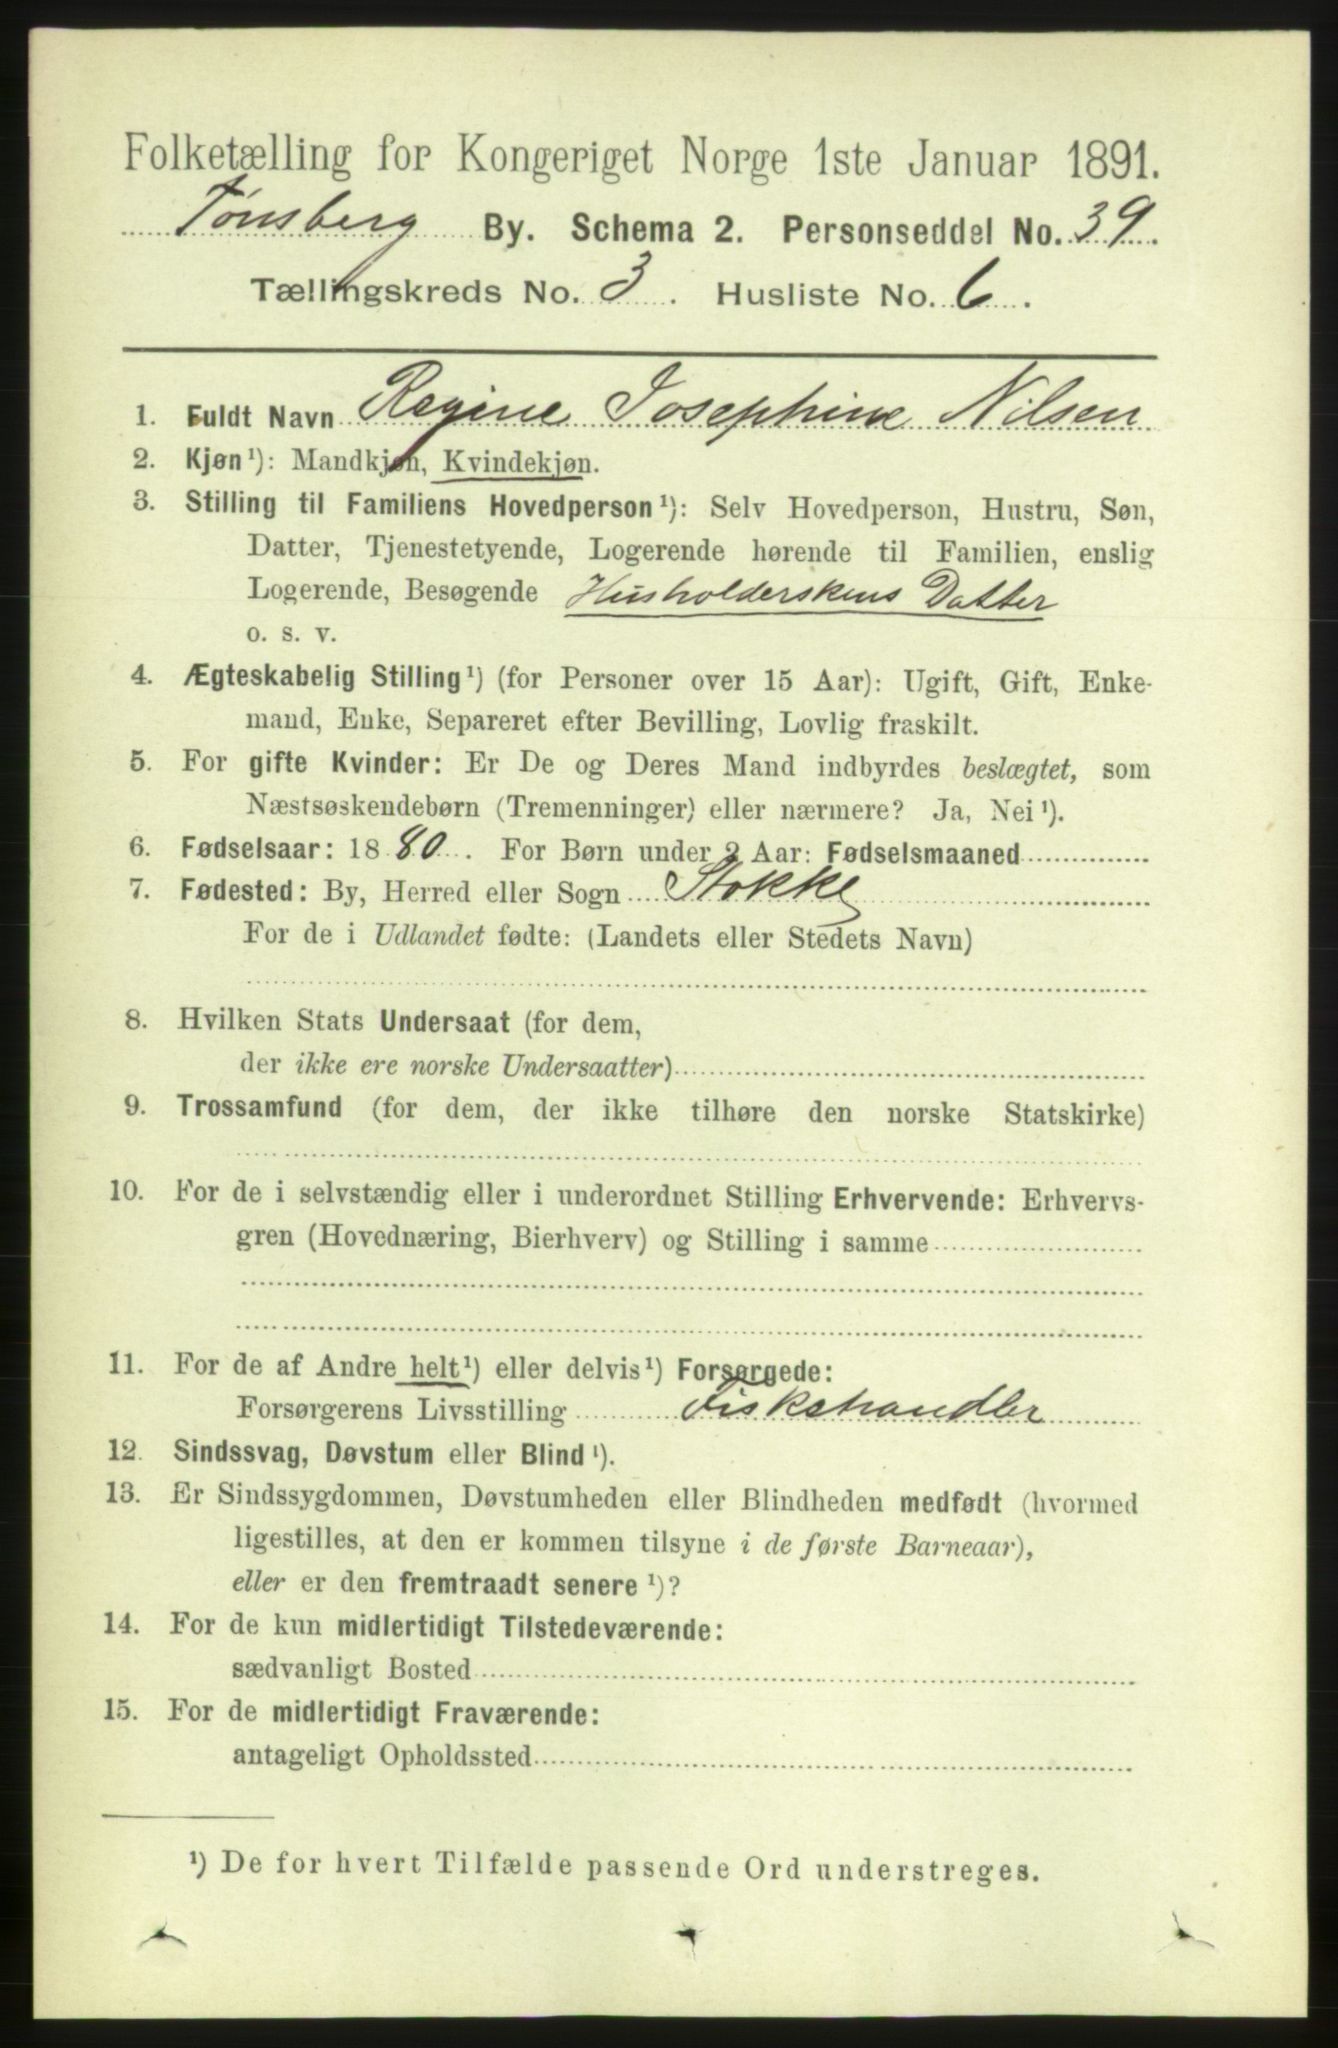 Folketælling for Kongeriget Norge 1ste Januar 1891.
Tønsberg By. Schema 2. Personseddel No. 39.
Tællingskreds No. 3. Husliste No. 6.
1. Fuldt Navn Regine Josephine Nilsen
2. Kjøn¹): Mandkjøn, Kvindekjøn.
3. Stilling til Familiens Hovedperson¹): Selv Hovedperson, Hustru, Søn,
Datter, Tjenestetyende, Logerende hørende til Familien, enslig
Logerende, Besøgende Husholderskens Datter
o. s. v.
4. Ægteskabelig Stilling¹) (for Personer over 15 Aar): Ugift, Gift, Enke-
mand, Enke, Separeret efter Bevilling, Lovlig fraskilt.
5. For gifte Kvinder: Er De og Deres Mand indbyrdes beslægtet, som
Næstsøskendebørn (Tremenninger) eller nærmere? Ja, Nei¹).
6. Fødselsaar: 1880. For Børn under 2 Aar: Fødselsmaaned
7. Fødested: By, Herred eller Sogn Stokke
For de i Udlandet fødte: (Landets eller Stedets Navn)
8. Hvilken Stats Undersaat (for dem,
der ikke ere norske Undersaatter)
9. Trossamfund (for dem, der ikke tilhøre den norske Statskirke)
10. For de i selvstændig eller i underordnet Stilling Erhvervende: Erhvervs-
gren (Hovednæring, Bierhverv) og Stilling i samme
11. For de af Andre helt¹) eller delvis¹) Forsørgede:
Forsørgerens Livsstilling Fiskehandler
12. Sindssvag, Døvstum eller Blind¹).
13. Er Sindssygdommen, Døvstumheden eller Blindheden medfødt (hvormed
ligestilles, at den er kommen tilsyne i de første Barneaar),
eller er den fremtraadt senere¹)?
14. For de kun midlertidigt Tilstedeværende:
sædvanligt Bosted
15. For de midlertidigt Fraværende:
antageligt Opholdssted
¹) De for hvert Tilfælde passende Ord understreges.